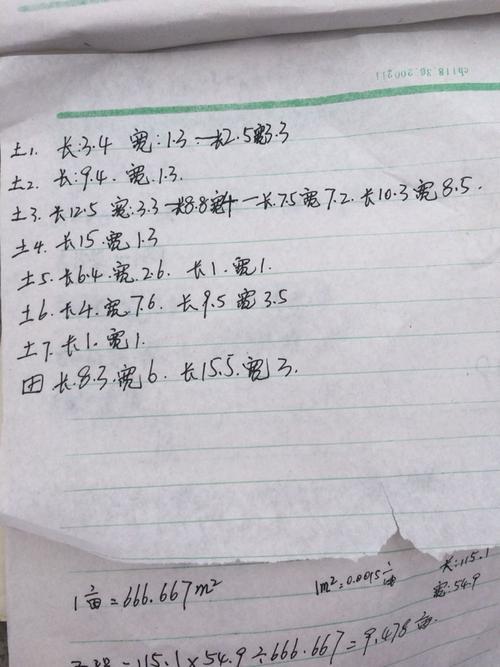 土1. 长:3.4 宽:1.3 长2.5宽3.3
土2. 长:9.4. 宽.1.3.
土3. 长12.5 宽:3.3 长8.8宽 一长7.5宽7.2. 长10.3宽8.5.
土4. 长15.宽1.3
土5.长6.4.宽2.6. 长1.宽1.
土6.长4.宽7.6. 长9.5宽3.5
土7.长1.宽1.
田 长.8.3.宽6. 长15.5.宽3.
1亩=666.667m² 1m²=0.0015亩 长:115.1
宽:54.9
=115.1×54.9÷666.667=9.478亩.